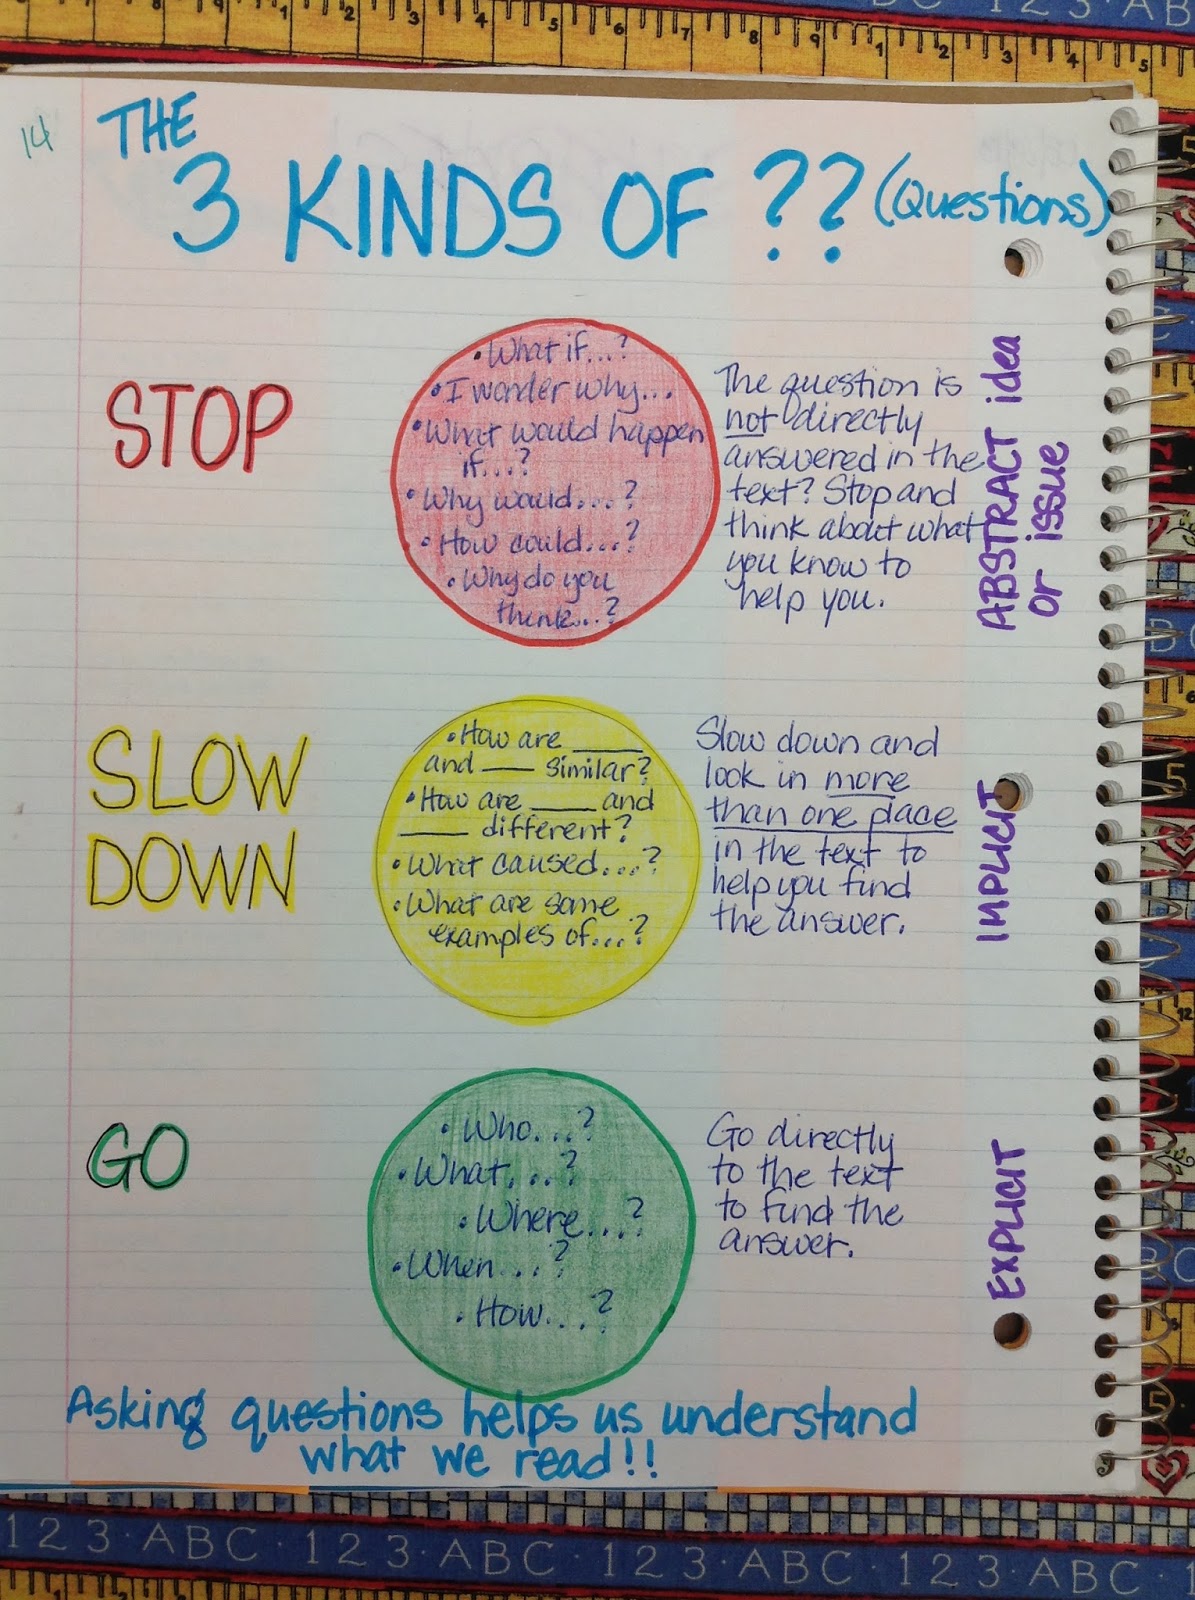 BC 1 2 3 · AB
1 2 3 4 5 6 7 8 9 1 2 3 4 5
14
THE
3 KINDS OF ?? (Questions)
STOP
• What if...?
• I wonder why...
• What would happen
if...?
• Why would...?
• How could...?
• Why do you
think...?
The question is
not directly
answered in the
text? Stop and
think about what
you know to
help you.
ABSTRACT idea
or issue
SLOW
DOWN
• How are ____
and ___ similar?
• How are ____ and
____ different?
• What caused...?
• What are some
examples of...?
Slow down and
look in more
than one place
in the text to
help you find
the answer.
IMPLICIT
GO
• Who...?
• What...?
• Where...?
• When...?
• How...?
Go directly
to the text
to find the
answer.
EXPLICIT
Asking questions helps us understand
what we read!!
1 2 3 · ABC · 1 2 3 · ABC · 1 2 3 · ABC · 1 2 3 · ABC ·